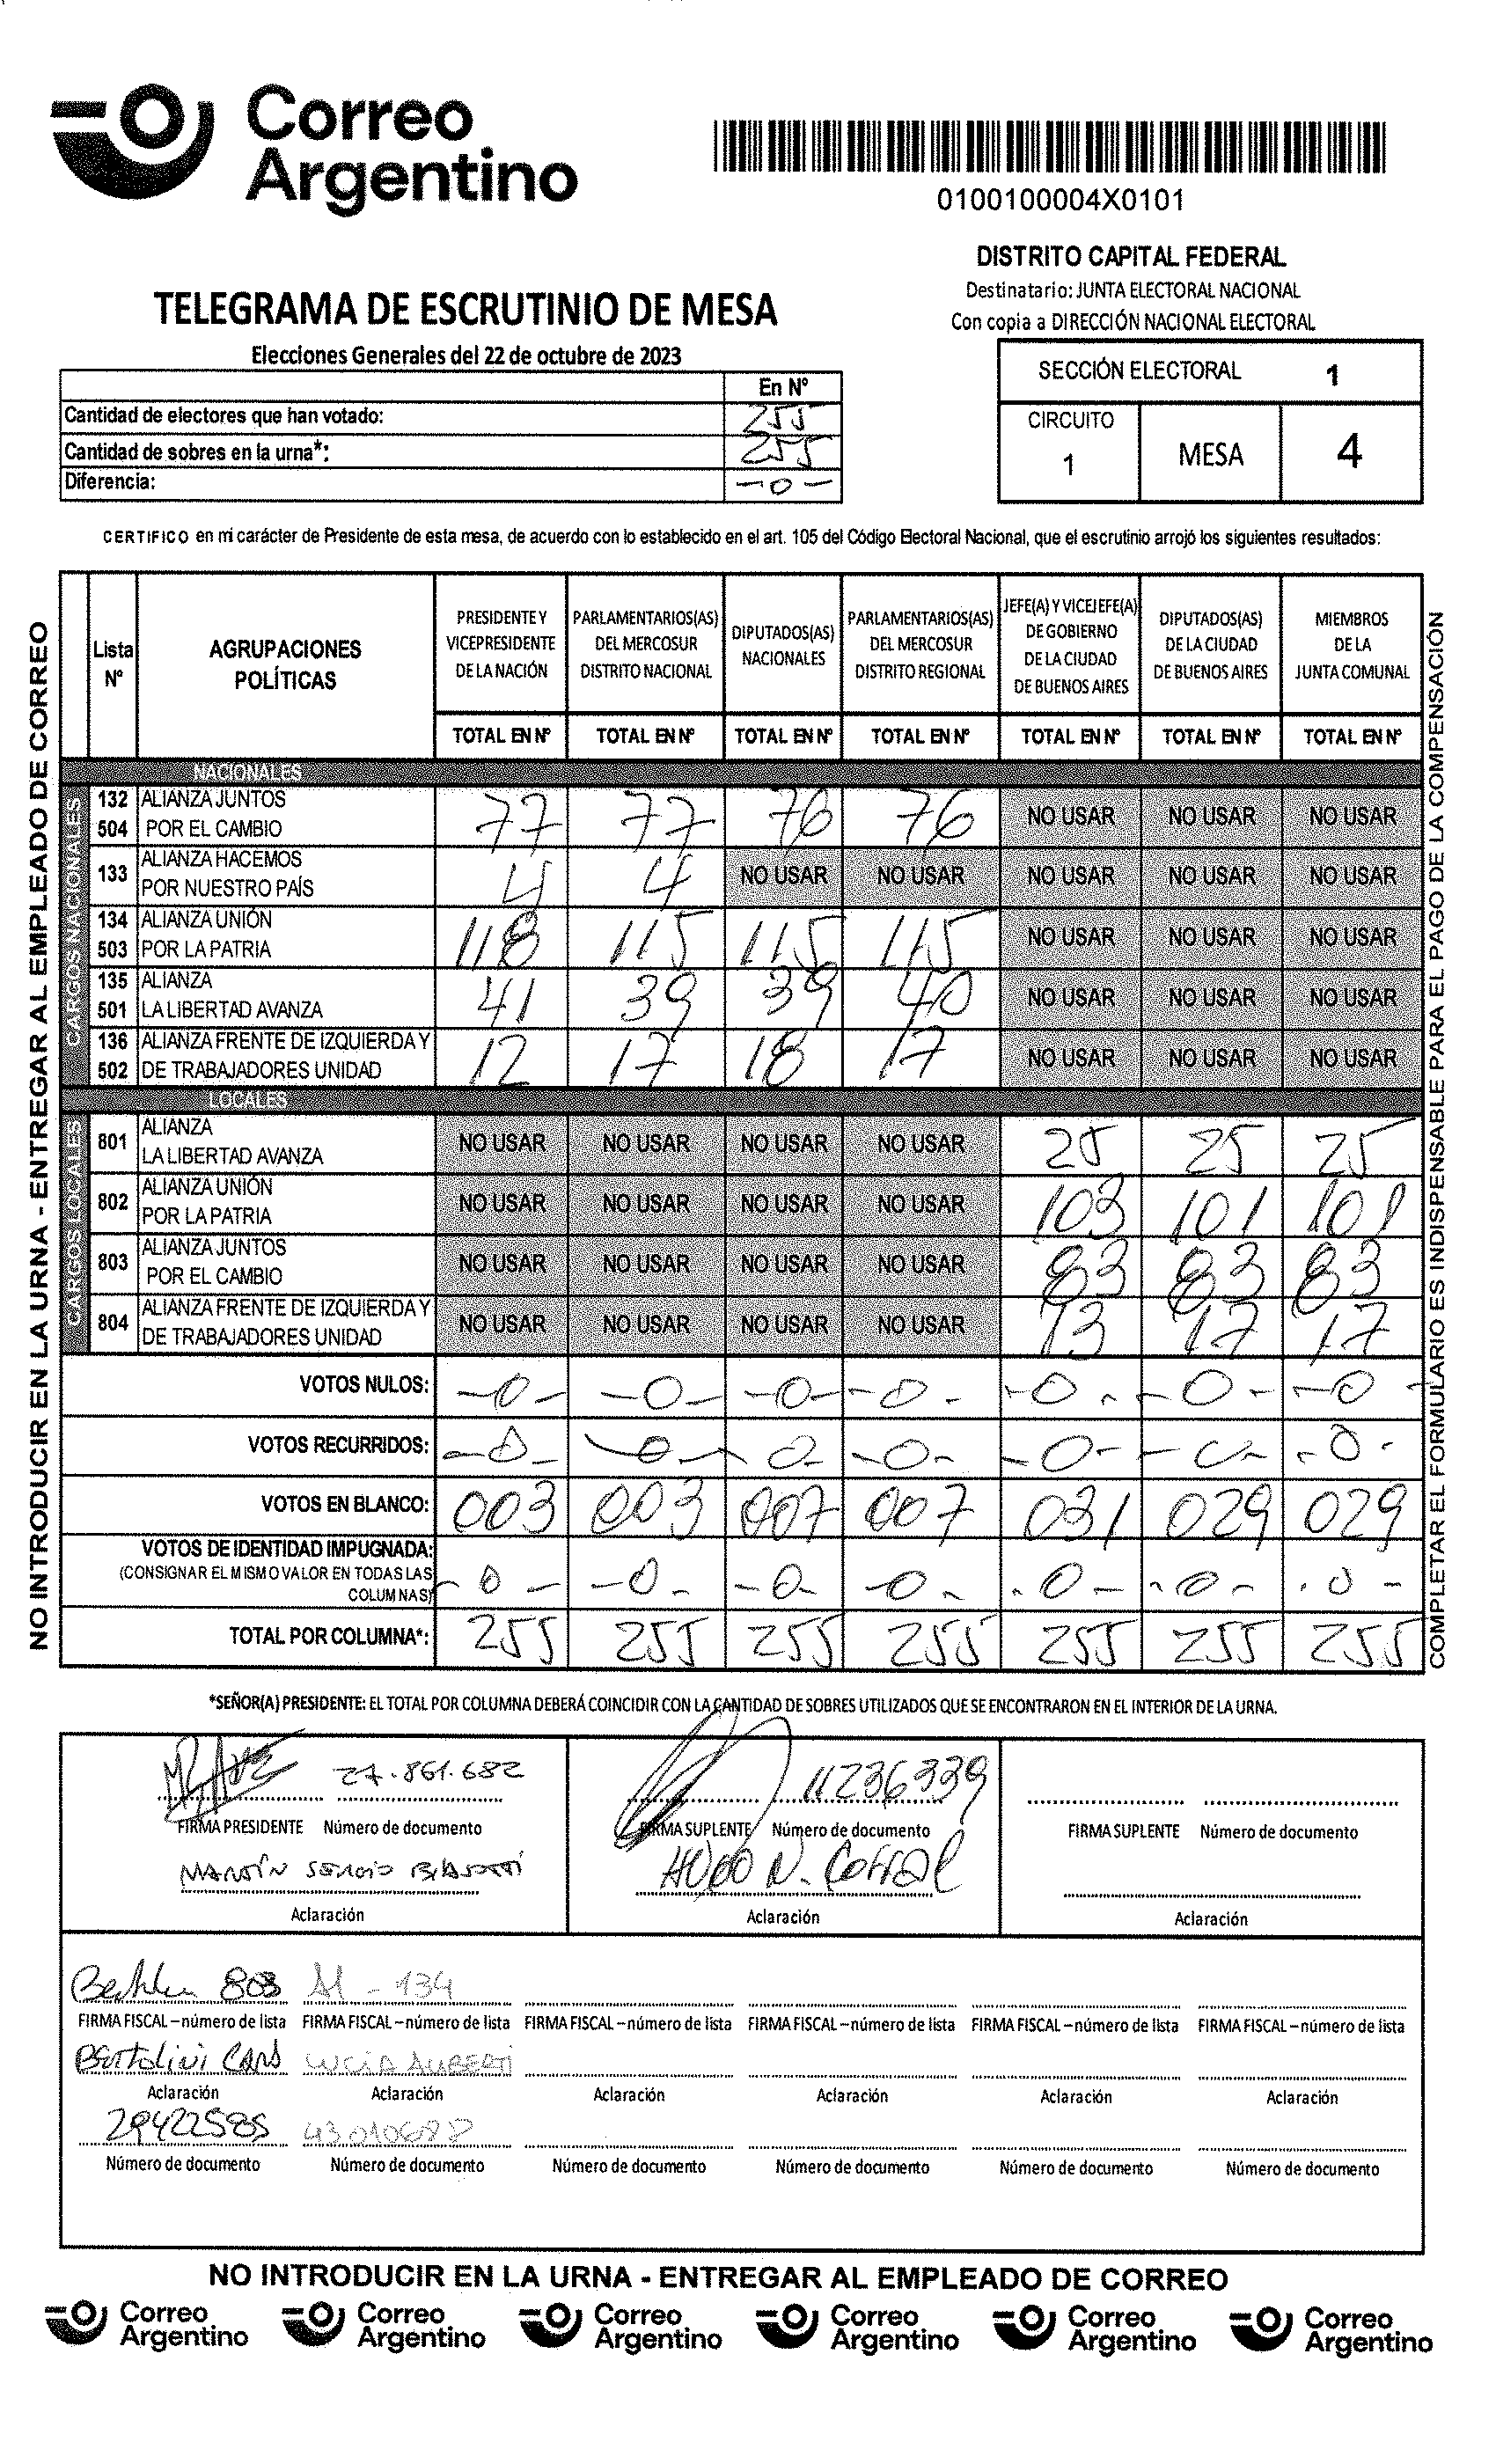 Correo
Argentino
0100100004X0101
DISTRITO CAPITAL FEDERAL
Destinatario: JUNTA ELECTORAL NACIONAL
Con copia a DIRECCIÓN NACIONAL ELECTORAL
TELEGRAMA DE ESCRUTINIO DE MESA
Elecciones Generales del 22 de octubre de 2023
En Nº
Cantidad de electores que han votado: 255
Cantidad de sobres en la urna*: 255
Diferencia: -0-
SECCIÓN ELECTORAL 1
CIRCUITO 1 MESA 4
CERTIFICO en mi carácter de Presidente de esta mesa, de acuerdo con lo establecido en el art. 105 del Código Electoral Nacional, que el escrutinio arrojó los siguientes resultados:
NO INTRODUCIR EN LA URNA - ENTREGAR AL EMPLEADO DE CORREO
COMPLETAR EL FORMULARIO ES INDISPENSABLE PARA EL PAGO DE LA COMPENSACIÓN
Lista Nº
AGRUPACIONES POLÍTICAS
PRESIDENTE Y VICEPRESIDENTE DE LA NACIÓN
PARLAMENTARIOS(AS) DEL MERCOSUR DISTRITO NACIONAL
DIPUTADOS(AS) NACIONALES
PARLAMENTARIOS(AS) DEL MERCOSUR DISTRITO REGIONAL
JEFE(A) Y VICEJEFE(A) DE GOBIERNO DE LA CIUDAD DE BUENOS AIRES
DIPUTADOS(AS) DE LA CIUDAD DE BUENOS AIRES
MIEMBROS DE LA JUNTA COMUNAL
TOTAL EN Nº TOTAL EN Nº TOTAL EN Nº TOTAL EN Nº TOTAL EN Nº TOTAL EN Nº TOTAL EN Nº
NACIONALES
CARGOS NACIONALES
132 504 ALIANZA JUNTOS POR EL CAMBIO 77 77 76 76 NO USAR NO USAR NO USAR
133 ALIANZA HACEMOS POR NUESTRO PAÍS 4 4 NO USAR NO USAR NO USAR NO USAR NO USAR
134 503 ALIANZA UNIÓN POR LA PATRIA 118 115 115 115 NO USAR NO USAR NO USAR
135 501 ALIANZA LA LIBERTAD AVANZA 41 39 39 40 NO USAR NO USAR NO USAR
136 502 ALIANZA FRENTE DE IZQUIERDA Y DE TRABAJADORES UNIDAD 12 17 18 17 NO USAR NO USAR NO USAR
LOCALES
CARGOS LOCALES
801 ALIANZA LA LIBERTAD AVANZA NO USAR NO USAR NO USAR NO USAR 25 25 25
802 ALIANZA UNIÓN POR LA PATRIA NO USAR NO USAR NO USAR NO USAR 103 101 101
803 ALIANZA JUNTOS POR EL CAMBIO NO USAR NO USAR NO USAR NO USAR 83 83 83
804 ALIANZA FRENTE DE IZQUIERDA Y DE TRABAJADORES UNIDAD NO USAR NO USAR NO USAR NO USAR 13 17 17
VOTOS NULOS: -0- -0- -0- -0- -0- -0- -0-
VOTOS RECURRIDOS: -0- -0- -0- -0- -0- -0- -0-
VOTOS EN BLANCO: 003 003 007 007 031 029 029
VOTOS DE IDENTIDAD IMPUGNADA: (CONSIGNAR EL MISMO VALOR EN TODAS LAS COLUMNAS) -0- -0- -0- -0- -0- -0- -0-
TOTAL POR COLUMNA*: 255 255 255 255 255 255 255
*SEÑOR(A) PRESIDENTE: EL TOTAL POR COLUMNA DEBERÁ COINCIDIR CON LA CANTIDAD DE SOBRES UTILIZADOS QUE SE ENCONTRARON EN EL INTERIOR DE LA URNA.
27.861.682 11236339
FIRMA PRESIDENTE Número de documento FIRMA SUPLENTE Número de documento FIRMA SUPLENTE Número de documento
MARTÍN SERGIO HUGO N. Corral
Aclaración Aclaración Aclaración
803 - 134
FIRMA FISCAL – número de lista FIRMA FISCAL – número de lista FIRMA FISCAL – número de lista FIRMA FISCAL – número de lista FIRMA FISCAL – número de lista FIRMA FISCAL – número de lista
Bertolini LUCÍA ALIBERTI
Aclaración Aclaración Aclaración Aclaración Aclaración Aclaración
29422585
Número de documento Número de documento Número de documento Número de documento Número de documento Número de documento
NO INTRODUCIR EN LA URNA - ENTREGAR AL EMPLEADO DE CORREO
Correo Argentino Correo Argentino Correo Argentino Correo Argentino Correo Argentino Correo Argentino